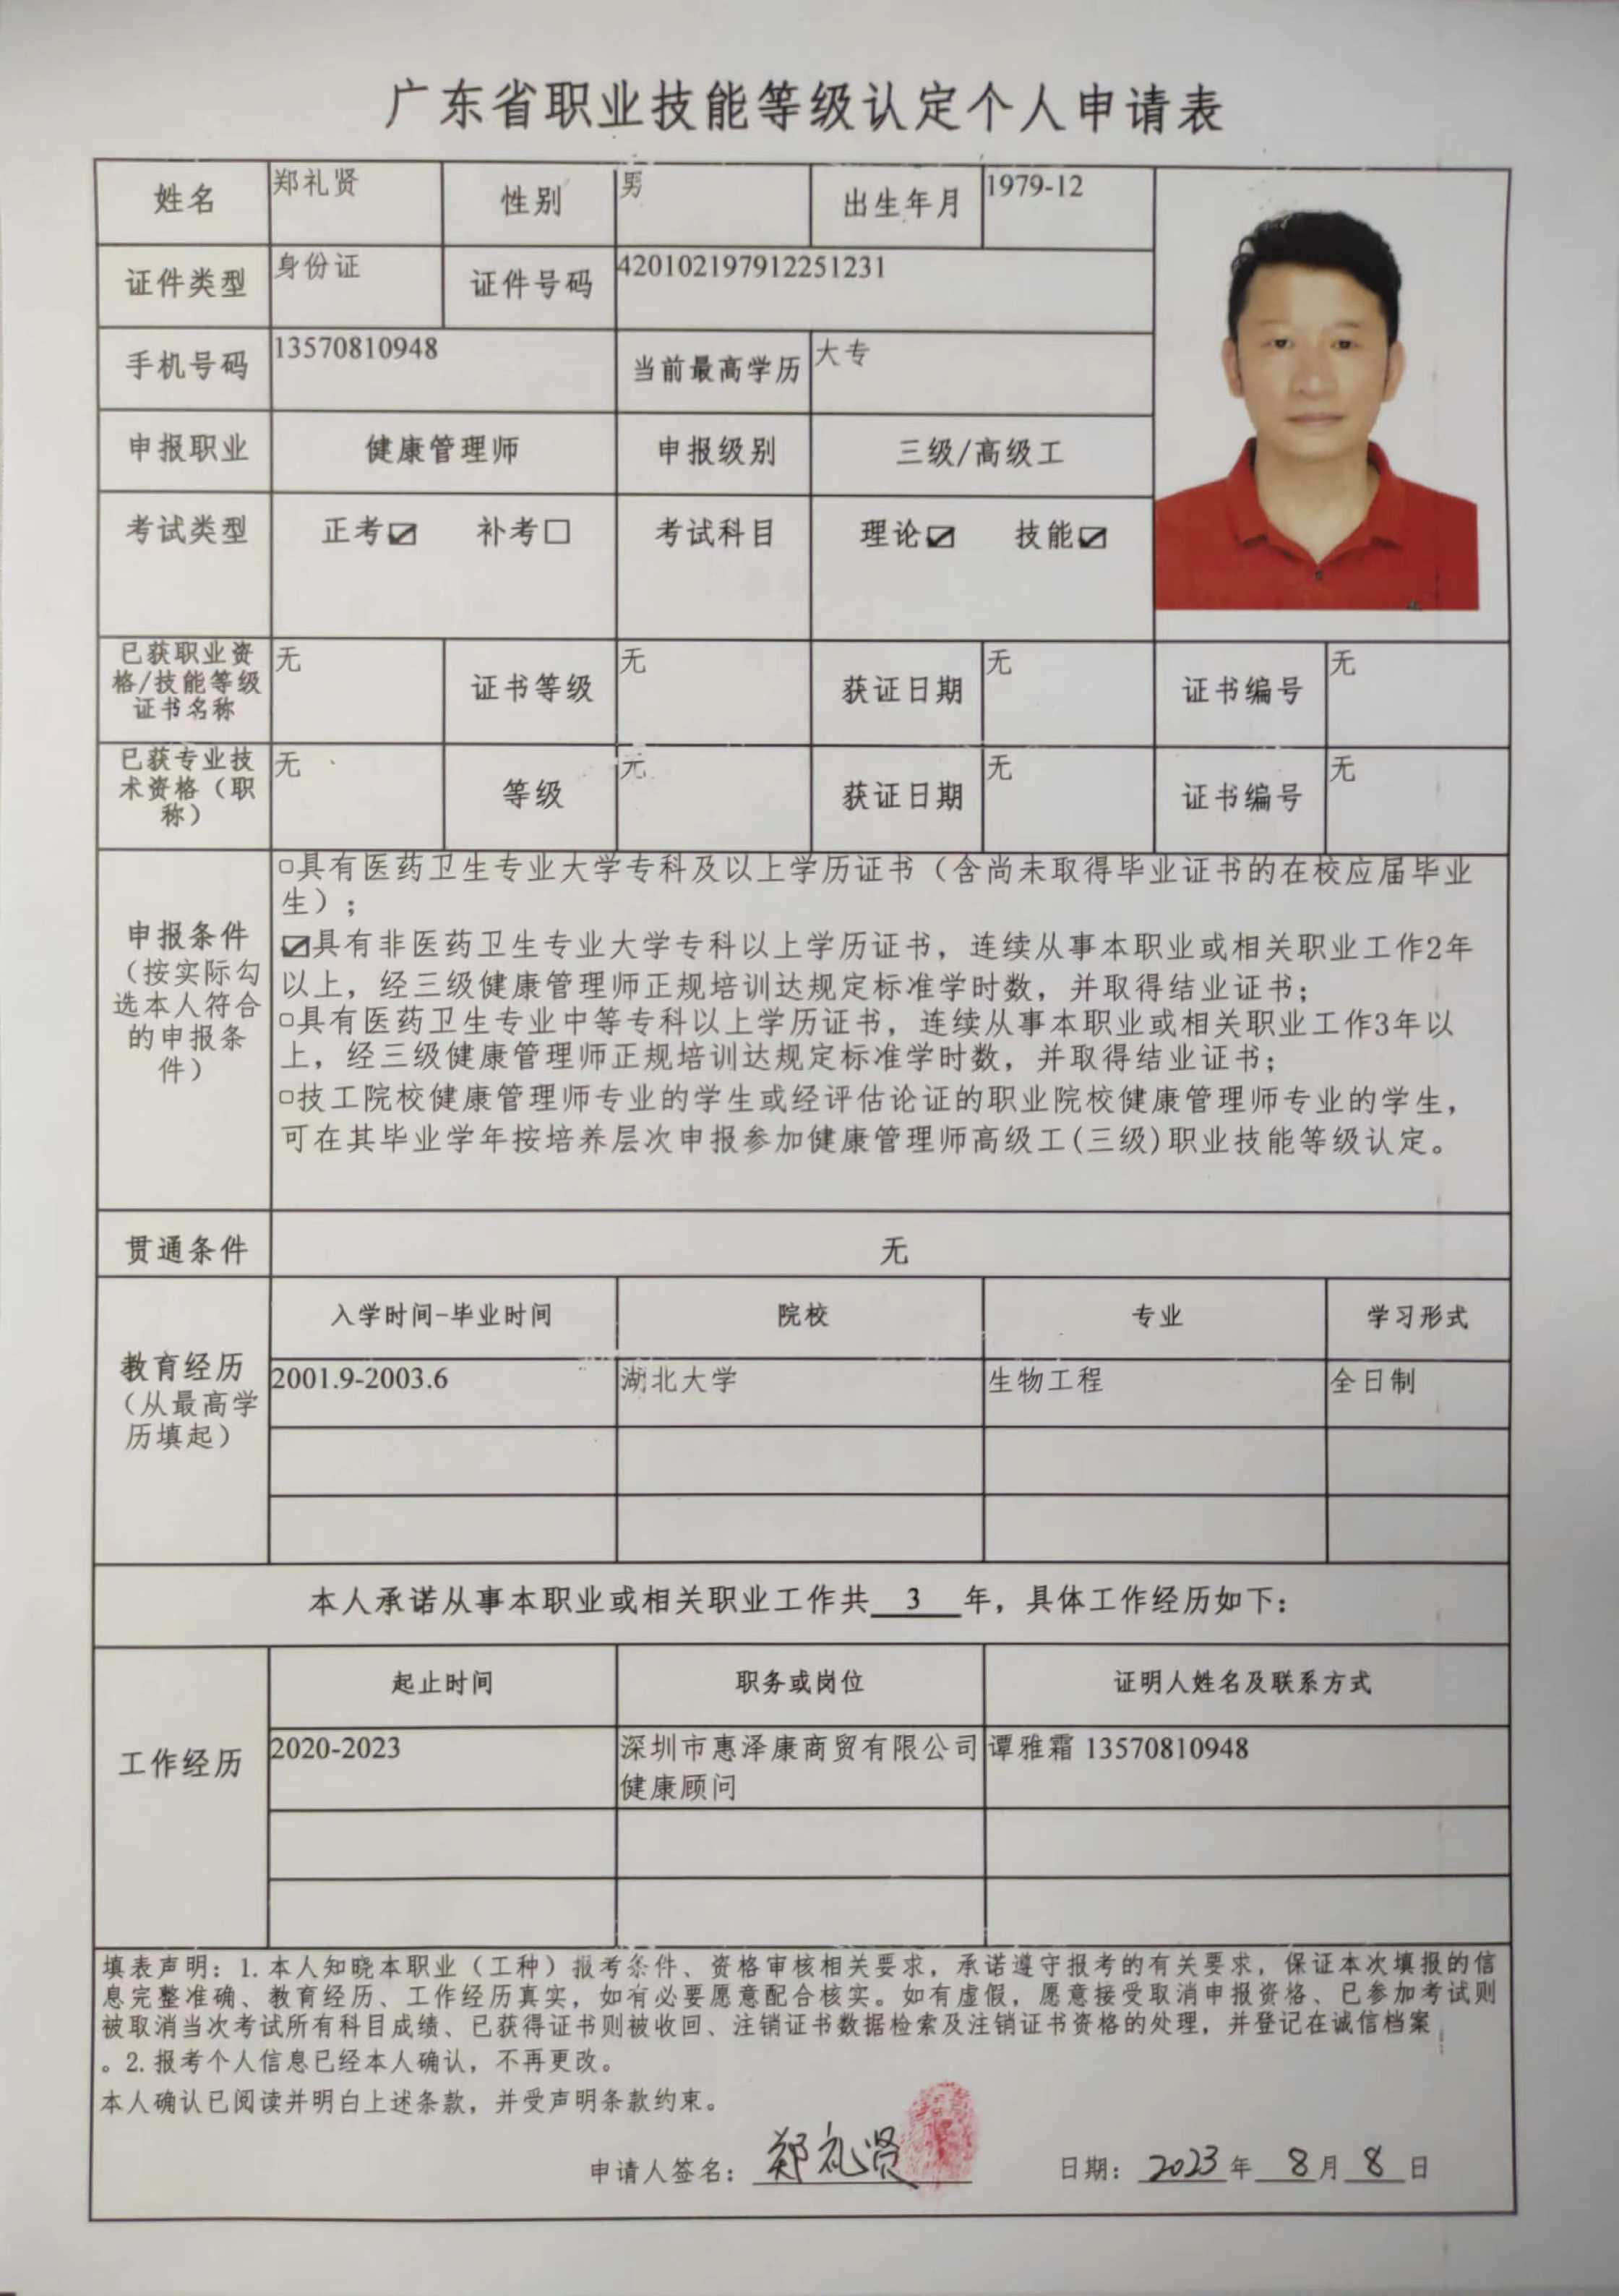 广东省职业技能等级认定个人申请表
姓名 郑礼贤 性别 男 出生年月 1979-12
证件类型 身份证 证件号码 420102197912251231
手机号码 13570810948 当前最高学历 大专
申报职业 健康管理师 申报级别 三级/高级工
考试类型 正考☑ 补考☐ 考试科目 理论☑ 技能☑
已获职业资
格/技能等级
证书名称
无 证书等级 无 获证日期 无 证书编号 无
已获专业技
术资格（职
称）
无 等级 无 获证日期 无 证书编号 无
申报条件
（按实际勾
选本人符合
的申报条
件）
☐具有医药卫生专业大学专科及以上学历证书（含尚未取得毕业证书的在校应届毕业
生）；
☑具有非医药卫生专业大学专科以上学历证书，连续从事本职业或相关职业工作2年
以上，经三级健康管理师正规培训达规定标准学时数，并取得结业证书；
☐具有医药卫生专业中等专科以上学历证书，连续从事本职业或相关职业工作3年以
上，经三级健康管理师正规培训达规定标准学时数，并取得结业证书；
☐技工院校健康管理师专业的学生或经评估论证的职业院校健康管理师专业的学生，
可在其毕业学年按培养层次申报参加健康管理师高级工(三级)职业技能等级认定。
贯通条件 无
教育经历
（从最高学
历填起）
入学时间-毕业时间 院校 专业 学习形式
2001.9-2003.6 湖北大学 生物工程 全日制
本人承诺从事本职业或相关职业工作共 3 年，具体工作经历如下：
工作经历
起止时间 职务或岗位 证明人姓名及联系方式
2020-2023 深圳市惠泽康商贸有限公司 谭雅霜 13570810948
健康顾问
填表声明：1.本人知晓本职业（工种）报考条件、资格审核相关要求，承诺遵守报考的有关要求，保证本次填报的信
息完整准确、教育经历、工作经历真实，如有必要愿意配合核实。如有虚假，愿意接受取消申报资格、已参加考试则
被取消当次考试所有科目成绩、已获得证书则被收回、注销证书数据检索及注销证书资格的处理，并登记在诚信档案
。2.报考个人信息已经本人确认，不再更改。
本人确认已阅读并明白上述条款，并受声明条款约束。
申请人签名：郑礼贤 日期：2023年 8月 8日